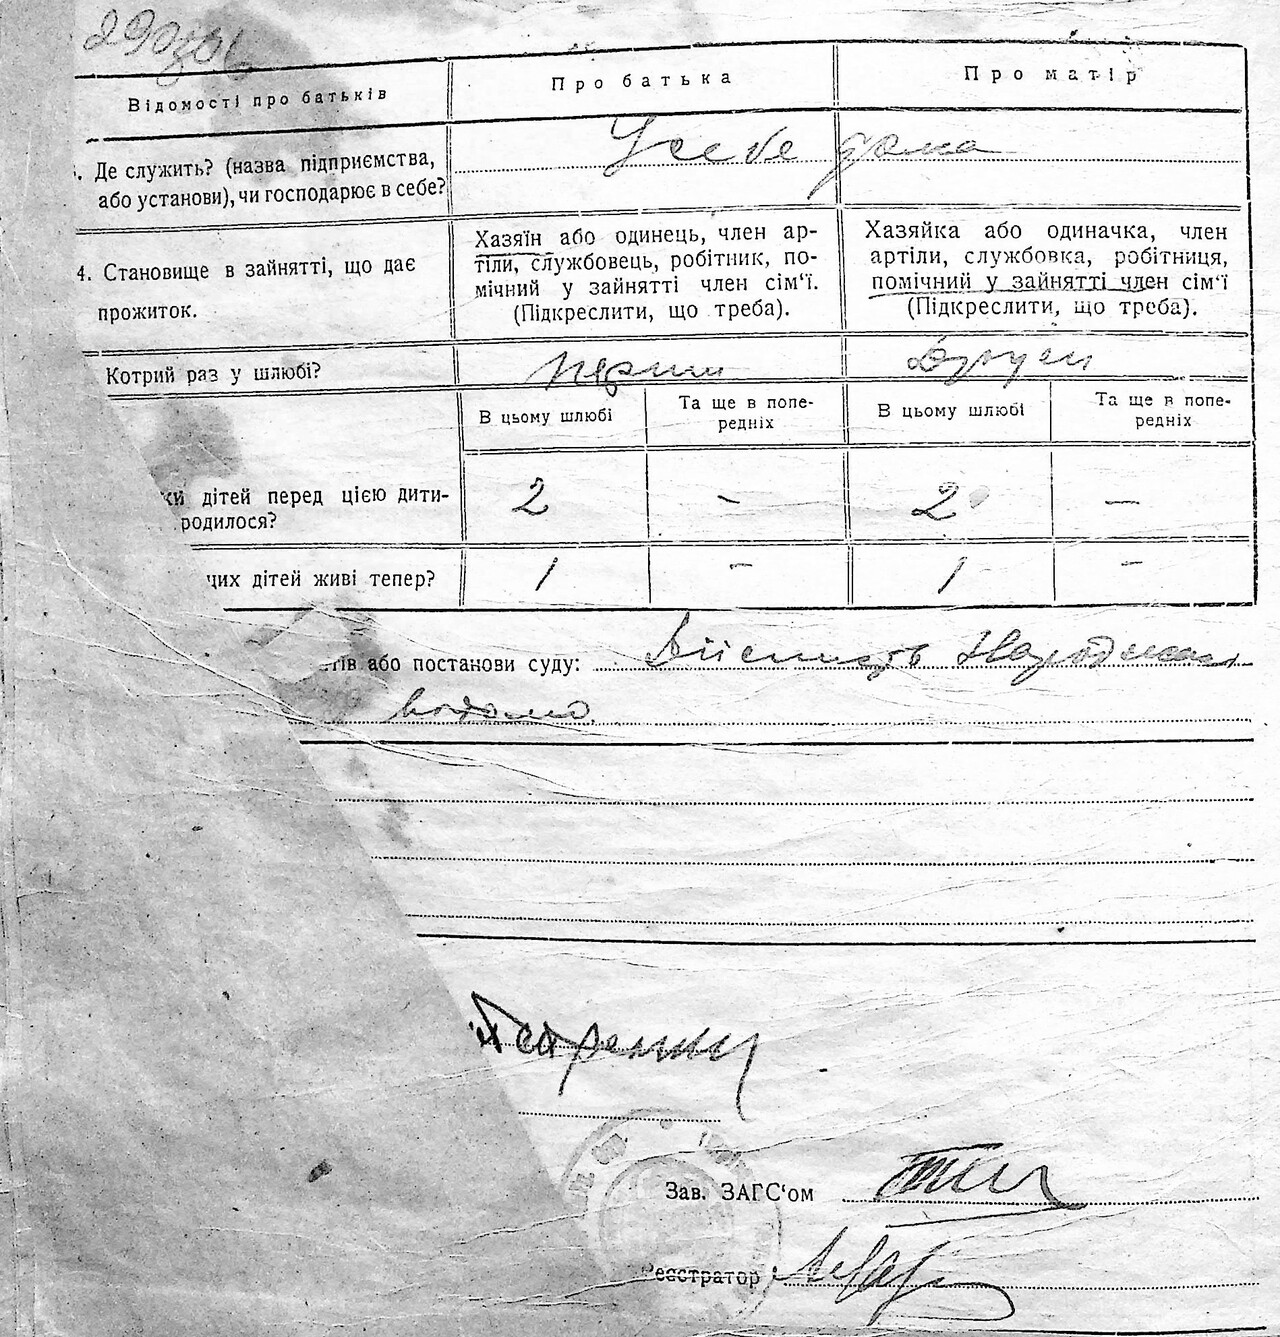 Відомості про батьків
Про батька
Про матір
Де служить? (назва підприємства,
або установи), чи господарює в себе?
У себе дома
4. Становище в зайнятті, що дає
прожиток.
Хазяїн або одинець, член ар-
тіли, службовець, робітник, по-
мічний у зайнятті член сім‘ї.
(Підкреслити, що треба).
Хазяйка або одиначка, член
артіли, службовка, робітниця,
помічний у зайнятті член сім‘ї
(Підкреслити, що треба).
Котрий раз у шлюбі?
перший
Другий
В цьому шлюбі
Та ще в попе-
редніх
В цьому шлюбі
Та ще в попе-
редніх
ки дітей перед цією дити-
родилося?
2
–
2
–
цих дітей живі тепер?
1
–
1
–
або постанови суду:
Зав. ЗАГС‘ом
Реєстратор